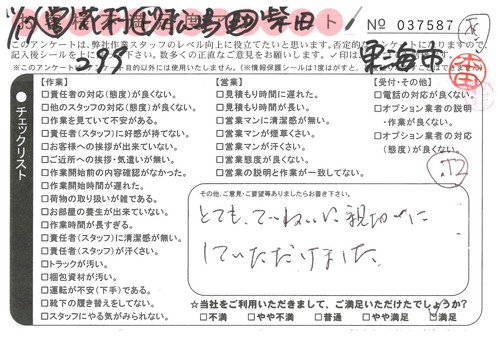 No 037587
このアンケートは、弊社作業スタッフのレベル向上に役立てたいと思います。否定的
記入後シールを
数多くの正直なご意見をお願いします。✓印は
※このアンケート目的以外には使用いたしません。(※情報保護シールは1度はがすと、
東海市
299
柴田
チェックリスト
【作業】
□責任者の対応(態度)が良くない。
□他のスタッフの対応(態度)が良くない。
□作業を見ていて不安がある。
□責任者(スタッフ)に好感が持てない。
□お客様への挨拶が出来ていない。
□ご近所への挨拶・気遣いが無い。
□作業開始前の内容確認がなかった。
□作業開始時間が遅れた。
□荷物の取り扱いが雑である。
□お部屋の養生が出来ていない。
□作業時間が長すぎる。
□責任者(スタッフ)に清潔感が無い。
□責任者(スタッフ)が汗くさい。
□トラックが汚い。
□梱包資材が汚い。
□運転が不安(下手)である。
□靴下の履き替えをしてない。
□スタッフにやる気がみられない。
【営業】
□見積もり時間に遅れた。
□見積もり時間が長い。
□営業マンに清潔感が無い。
□営業マンが煙草くさい。
□営業マンが汗くさい。
□営業態度が良くない。
□営業の説明と作業が一致してない。
【受付・その他】
□電話の対応が良くない。
□オプション業者の説明
・作業が良くない。
□オプション業者の対応
(態度)が良くない。
その他、ご意見・ご要望等ありましたらお書き下さい。
とても、ていねいに親切に
していただけました。
☆当社をご利用いただきまして、ご満足いただけたでしょうか?
□不満 □やや不満 □普通 □やや満足 □満足